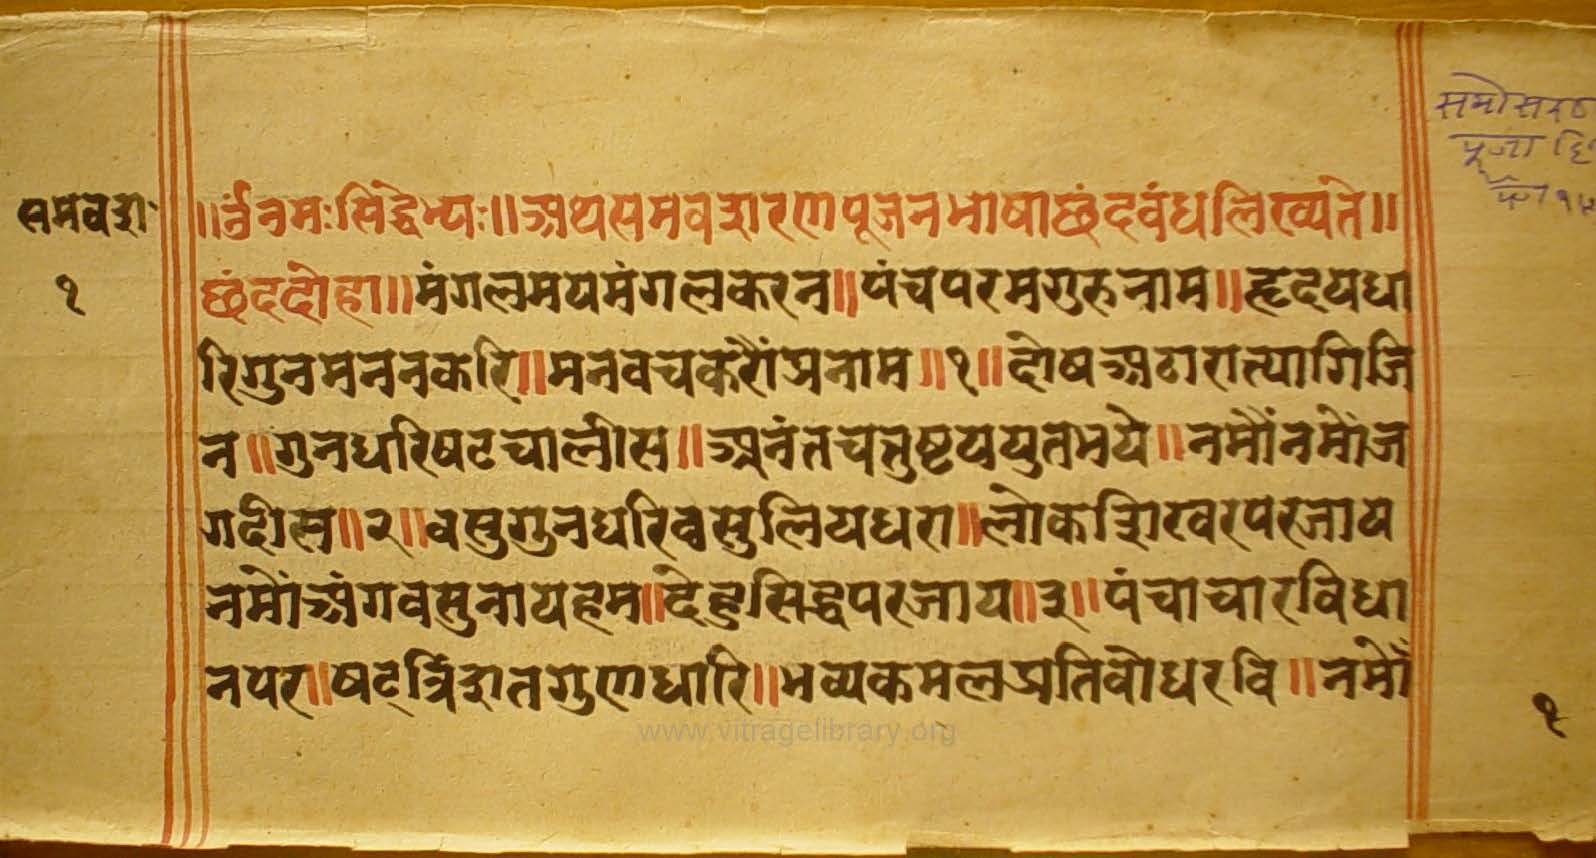 समवश
१
॥ॐनमःसिद्धेभ्यः॥अथसमवशरणपूजनभाषाछंदवंधलिख्यते॥
छंददोहा॥मंगलमयमंगलकरन॥पंचपरमगुरुनाम॥हृदयधा
रिगुनमननकरि॥मनवचकरौंप्रनाम॥१॥दोषअठारात्यागिजि
न॥गुनधरिषटचालीस॥अनंतचतुष्टययुतभये॥नमौंनमौंज
गदीस॥२॥वसुगुनधरिवसुलियधरा॥लोकशिखरपरजाय
नमौंअंगवसुनायहम॥देहुसिद्धपरजाय॥३॥पंचाचारविधा
नपर॥षट्त्रिंशतगुणधारि॥भव्यकमलप्रतिवोधरवि॥नमौं
समोसरण
पूजा
१
www.vitragelibrary.org